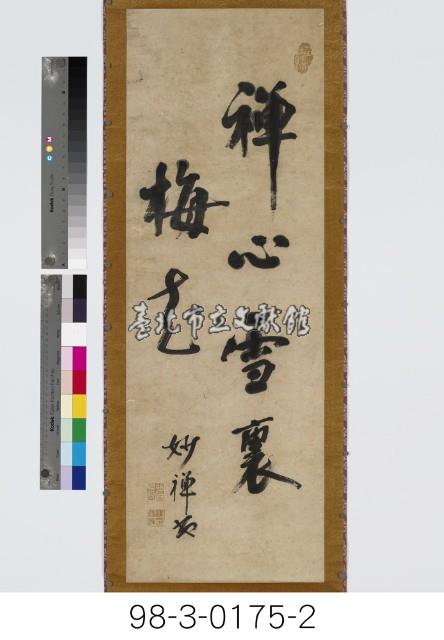 禅心雪裏
梅花
妙禅
臺北市立文獻館
98-3-0175-2